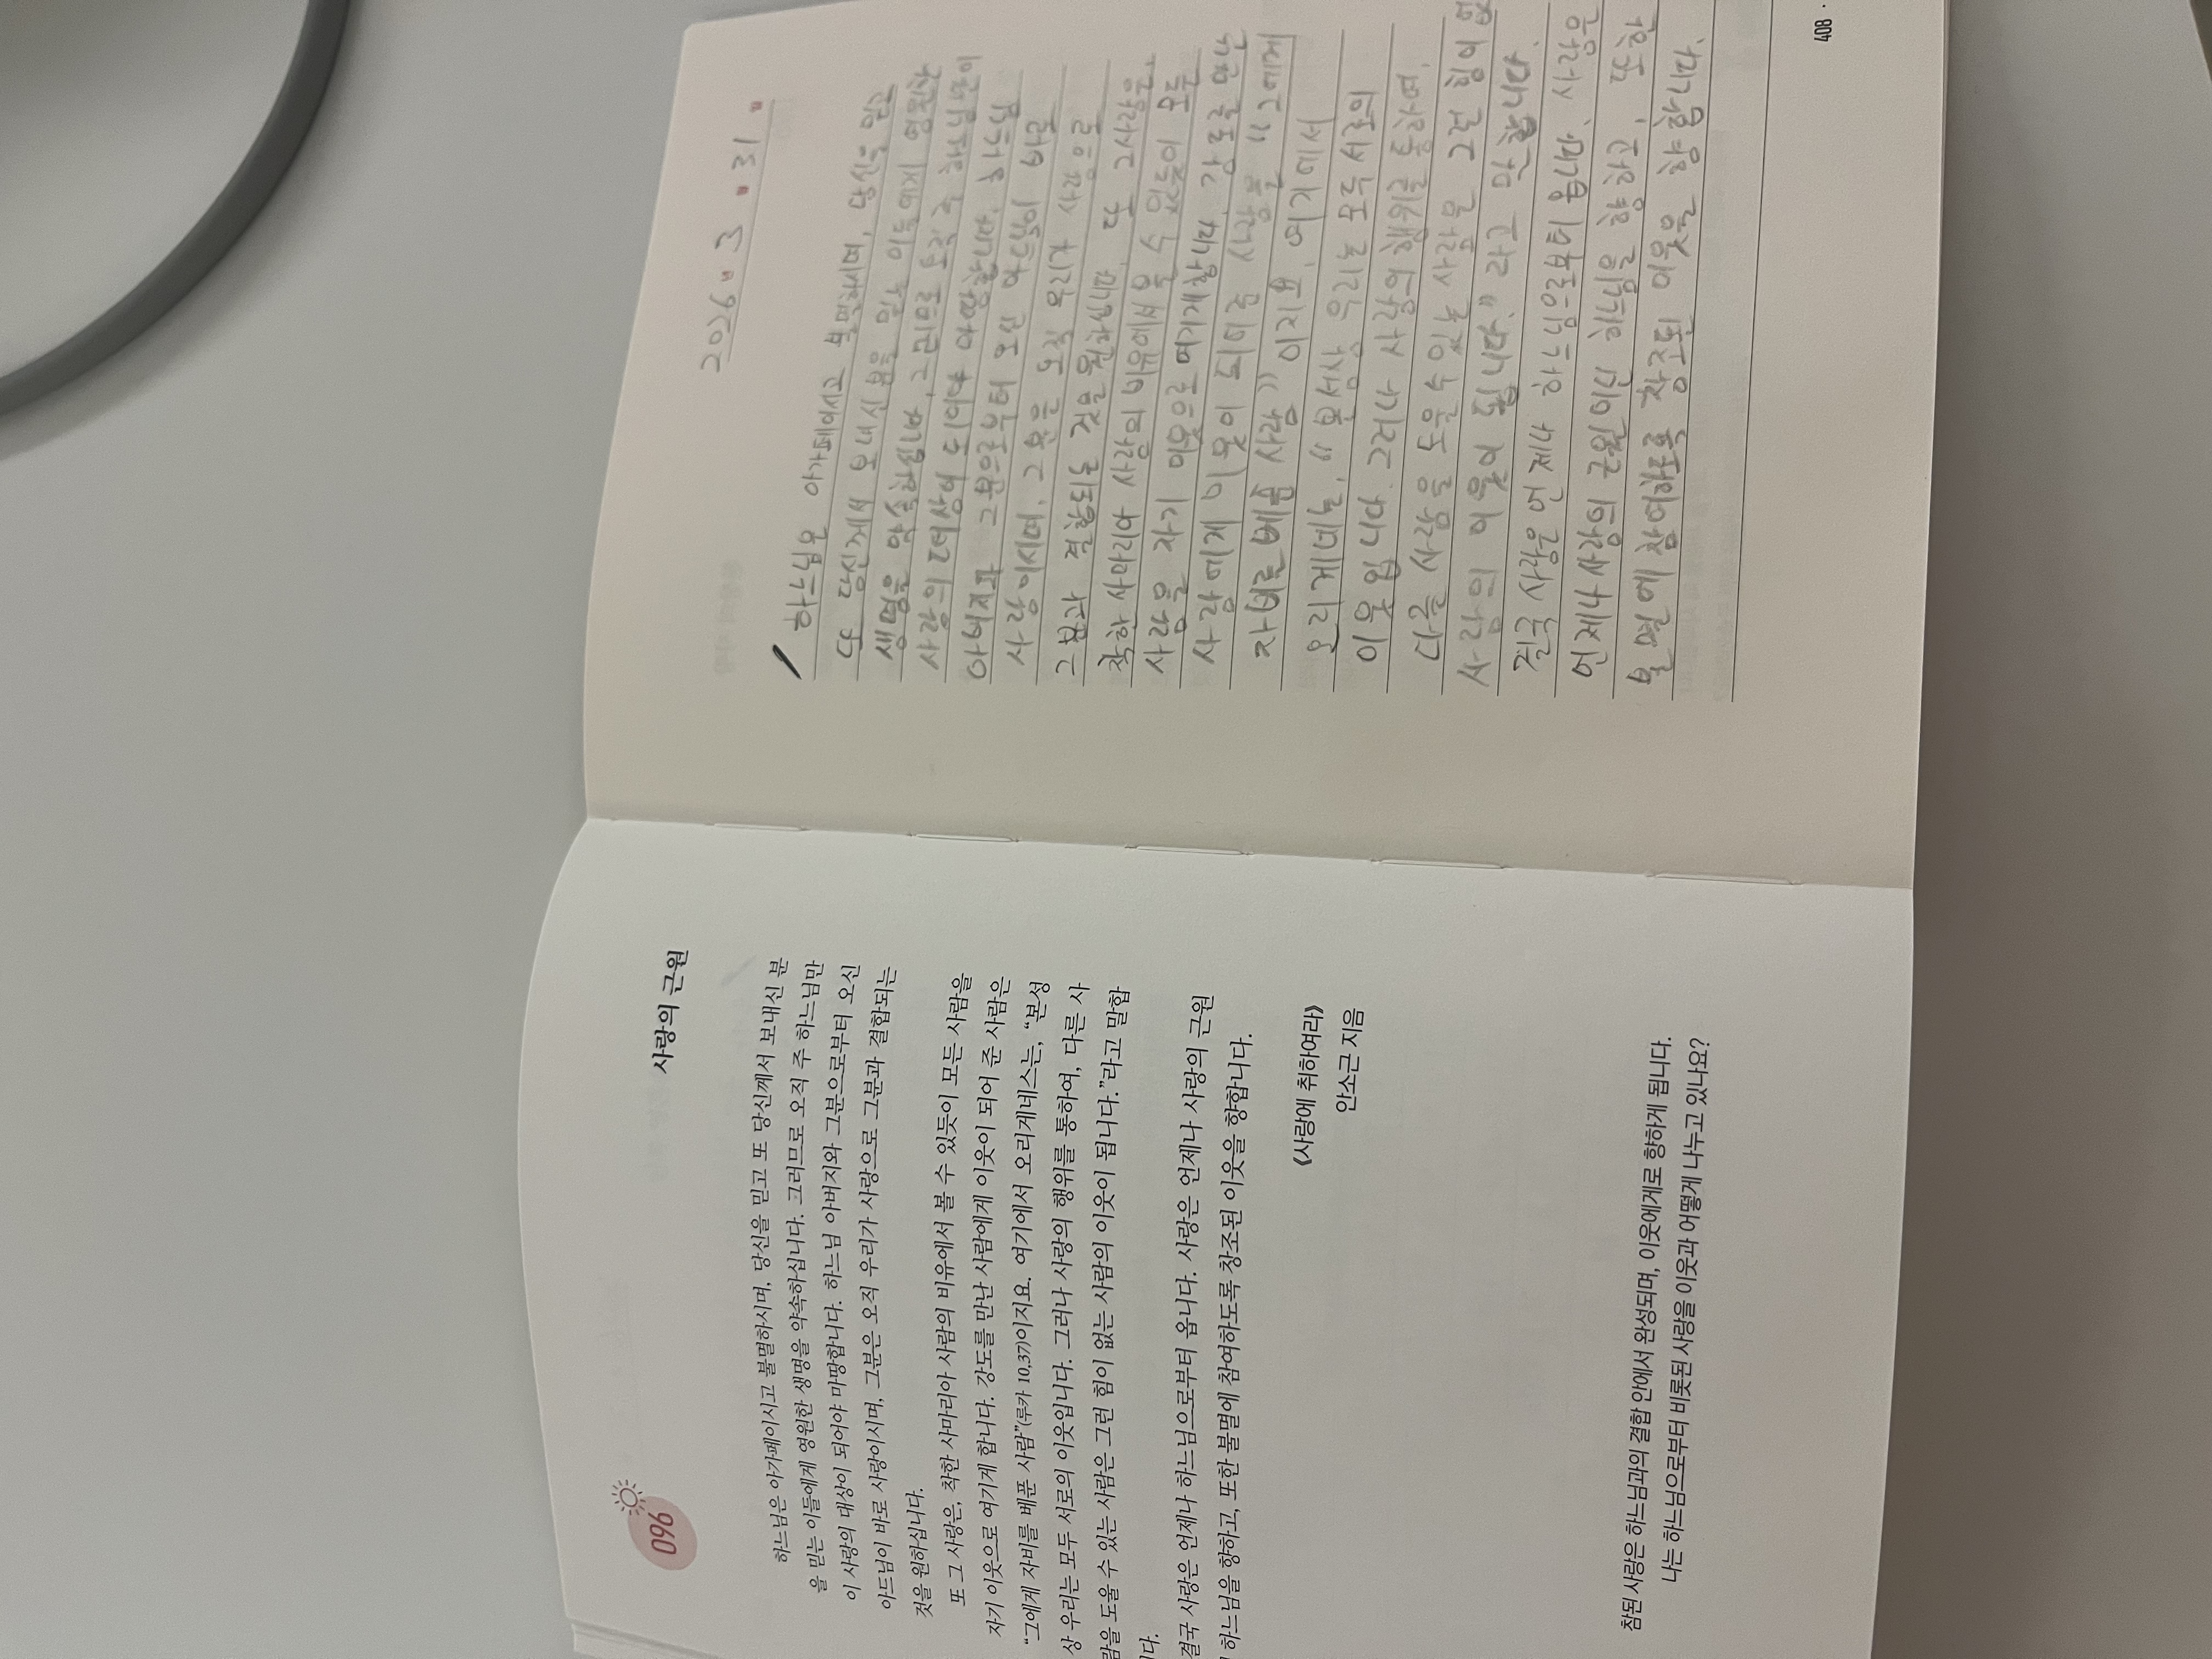 096
사랑의 근원
하느님은 아가페이시고 불멸하시며, 당신을 믿고 또 당신께서 보내신 분
을 믿는 이들에게 영원한 생명을 약속하십니다. 그러므로 오직 주 하느님만
이 사랑의 대상이 되어야 마땅합니다. 하느님 아버지와 그분으로부터 오신
아드님이 바로 사랑이시며, 그분은 오직 우리가 사랑으로 그분과 결합되는
것을 원하십니다.
또 그 사랑은, 착한 사마리아 사람의 비유에서 볼 수 있듯이 모든 사람을
자기 이웃으로 여기게 합니다. 강도를 만난 사람에게 이웃이 되어 준 사람은
“그에게 자비를 베푼 사람”(루카 10,37)이지요. 여기에서 오리게네스는, “본성
상 우리는 모두 서로의 이웃입니다. 그러나 사랑의 행위를 통하여, 다른 사
람을 도울 수 있는 사람은 그런 힘이 없는 사람의 이웃이 됩니다.”라고 말합
니다.
결국 사랑은 언제나 하느님으로부터 옵니다. 사랑은 언제나 사랑의 근원
하느님을 향하고, 또한 불멸에 참여하도록 창조된 이웃을 향합니다.
《사랑에 취하여라》
안소근 지음
참된 사랑은 하느님과의 결합 안에서 완성되며, 이웃에게로 향하게 됩니다.
나는 하느님으로부터 비롯된 사랑을 이웃과 어떻게 나누고 있나요?
2026. 3. 31.
하느님은 아가페이시고 불멸하시며, 당신을 믿고
또 당신께서 보내신 분을 믿는 이들에게 영원한
생명을 약속하십니다, 그러므로 오직 주 하느님만이
사랑의 대상이 되어야 마땅합니다. 하느님
아버지와 그분으로부터 오신 아드님이 바로
사랑이시며, 그분은 오직 우리가 사랑으로
그분과 결합되는 것을 원하십니다. 또 그사랑은,
착한 사마리아 사람의 비유에서 볼 수 있듯이 모든
사람을 자기 이웃으로 여기게합니다. 강도를 만난
사람에게 이웃이 되어준 사람은 “그에게
자비를 베푼 사람” 이지요. 여기에서
오리게네는, “본성상 우리는 모두 서로의
이웃입니다. 그러나 사랑의 행위를 통하여,
다른 사람을 도울수있는 사람은 그런 힘이 없
사람의 이웃이 됩니다.” 라고 말합니다.
결국 사랑은 언제나 하느님으로부터 옵니다. 사랑은
언제나 사랑의 근원이신 하느님을 향하고, 또한
불멸에 참여하도록 창조된 이웃을 향합니다.
408 ·